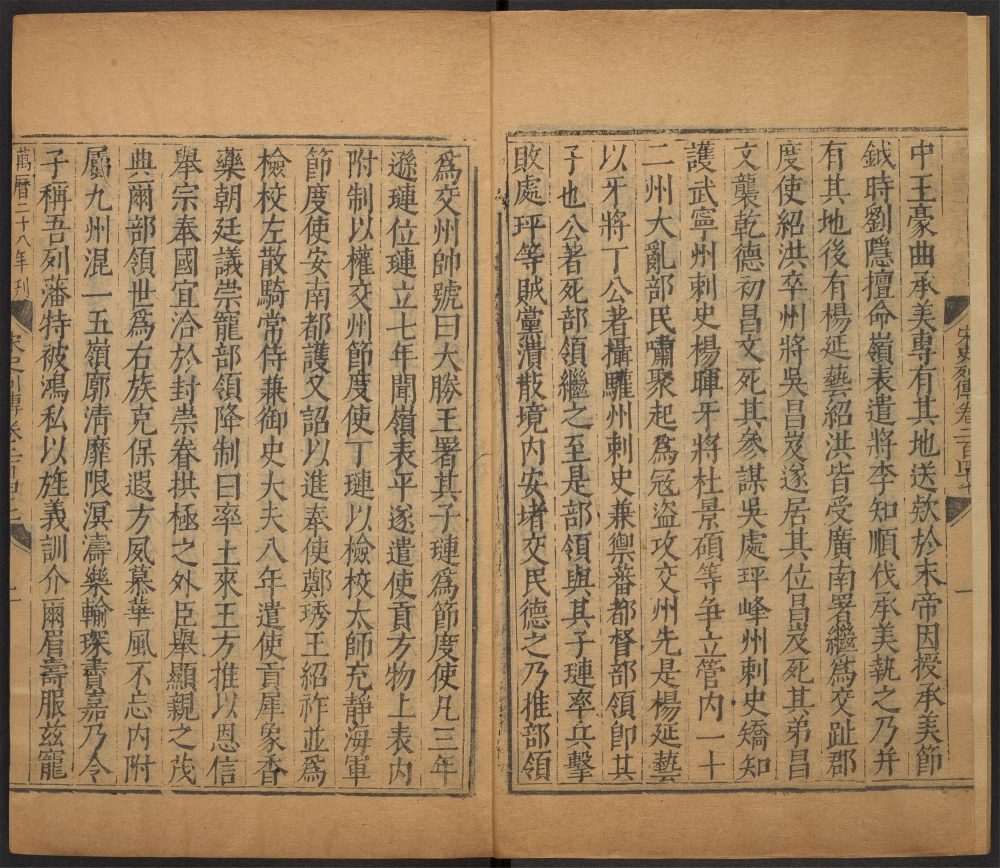 宋史列傳卷二百四十七
一
中王豪曲承美專有其地送欵於末帝因授承美節
鉞時劉隱擅命嶺表遣將李知順伐承美執之乃并
有其地後有楊延藝紹洪皆受廣南署繼爲交趾郡
度使紹洪卒州將吳昌岌遂居其位昌岌死其弟昌
文襲乾德初昌文死其參謀吳處玶峰州刺史矯知
護武寧州刺史楊暉牙將杜景碩等争立管內一十
二州大亂部民嘯聚起爲冦盜攻交州先是楊延藝
以牙將丁公著攝驩州刺史兼禦蕃都督部領卽其
子也公著死部領繼之至是部領與其子璉率兵擊
敗處玶等賊黨潰散境內安堵交民德之乃推部領
爲交州帥號曰大勝王署其子璉爲節度使凡三年
遜璉位璉立七年聞嶺表平遂遣使貢方物上表內
附制以權交州節度使丁璉以檢校太師充靜海軍
節度使安南都護又詔以進奉使鄭琇王紹祚並爲
檢校左散騎常侍兼御史大夫八年遣使貢犀象香
藥朝廷議崇寵部領降制曰率土來王方推以恩信
舉宗奉國宜洽於封崇眷拱極之外臣舉顯親之茂
典爾部領世爲右族克保遐方夙慕華風不忘內附
屬九州混一五嶺廓清靡限溟濤樂輸琛賮嘉乃令
子稱吾列藩特被鴻私以旌義訓介爾眉壽服茲寵
萬曆二十八年刊